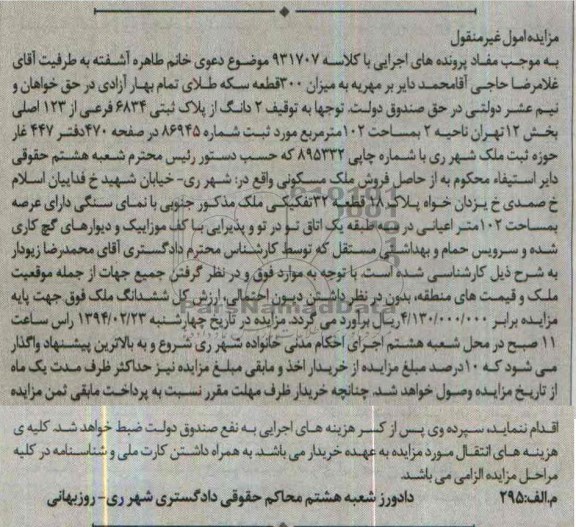 مزایده اموال غیر منقول
به موجب مفاد پرونده های اجرایی با کلاسه ۹۳۱۷۰۷ موضوع دعوی خانم طاهره آشفته به طرفیت آقای
غلامرضا حاجی آقامحمد دایر بر مهریه به میزان ۳۰۰قطعه سکه طلای تمام بهار آزادی در حق خواهان و
نیم عشر دولتی در حق صندوق دولت. توجها به توقیف ۲ دانگ از پلاک ثبتی ۶۸۳۴ فرعی از ۱۲۳ اصلی
بخش ۱۲تهران ناحیه ۲ بمساحت ۱۰۲مترمربع مورد ثبت شماره ۸۶۹۴۵ در صفحه ۴۷۰دفتر ۴۴۷ غار
حوزه ثبت ملک شهر ری با شماره چاپی ۸۹۵۳۳۲ که حسب دستور رئیس محترم شعبه هشتم حقوقی
دایر استیفاء محکوم به از حاصل فروش ملک مسکونی واقع در: شهر ری- خیابان شهید خ فداییان اسلام
خ صمدی خ یزدان خواه پلاک ۲۸ قطعه ۳۲تفکیکی ملک مذکور جنوبی با نمای سنگی دارای عرصه
بمساحت ۱۰۲متر اعیانی در طبقه یک اتاق تو در تو و پذیرایی با کف موزاییک و دیوارهای گچ کاری
شده و سرویس حمام و بهداشتی مستقل که توسط کارشناس محترم دادگستری آقای محمدرضا زیودار
به شرح ذیل کارشناسی شده است. با توجه به موارد فوق و در نظر گرفتن جمیع جهات از جمله موقعیت
ملک و قیمت های منطقه، بدون در نظر داشتن دیون احتمالی، ارزش کل ششدانگ ملک فوق جهت پایه
مزایده برابر ۴/۱۳۰/۰۰۰/۰۰۰ریال برآورد می گردد. مزایده در تاریخ چهارشنبه ۱۳۹۴/۰۲/۲۳ راس ساعت
۱۱ صبح در محل شعبه هشتم اجرای احکام مدنی خانواده شهر ری شروع و به بالاترین پیشنهاد واگذار
می شود که ۱۰درصد مبلغ مزایده از خریدار اخذ و مابقی مبلغ مزایده نیز حداکثر ظرف مدت یک ماه
از تاریخ مزایده وصول خواهد شد. چنانچه خریدار ظرف مهلت مقرر نسبت به پرداخت مابقی ثمن مزایده
اقدام ننماید، سپرده وی پس از کسر هزینه های اجرایی به نفع صندوق دولت ضبط خواهد شد. کلیه ی
هزینه های انتقال مورد مزایده به عهده خریدار می باشد. به همراه داشتن کارت ملی و شناسنامه در کلیه
مراحل مزایده الزامی می باشد.
م.الف:۲۹۵ دادورز شعبه هشتم محاکم حقوقی دادگستری شهر ری- روزبهانی